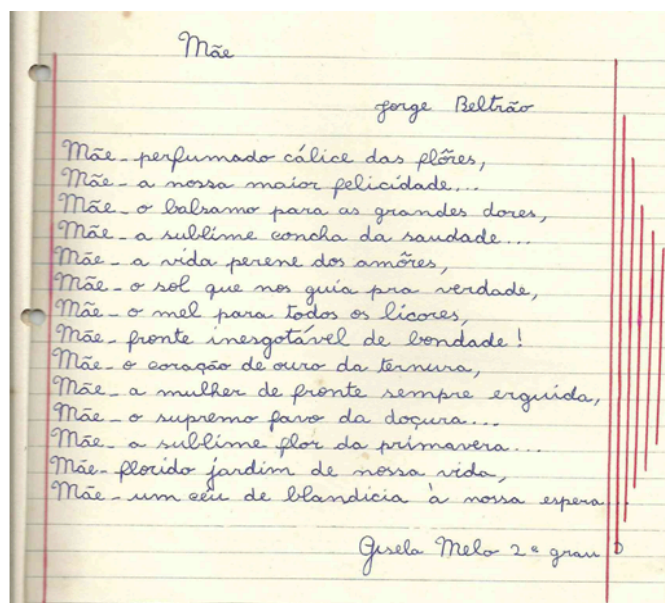 Mãe
Jorge Beltrão
Mãe - perfumado cálice das flôres,
Mãe - a nossa maior felicidade...
Mãe - o balsamo para as grandes dores,
Mãe - a sublime concha da saudade...
Mãe - a vida perene dos amôres,
Mãe - o sol que nos guia pra verdade,
Mãe - o mel para todos os licores,
Mãe - fronte inesgotável de bondade!
Mãe - o coração de ouro da ternura,
Mãe - a mulher de fronte sempre erguida,
Mãe - o supremo favo da doçura...
Mãe - a sublime flor da primavera...
Mãe - florido jardim de nossa vida,
Mãe - um céu de blandicia à nossa espera...
Gisela Melo 2º grau D